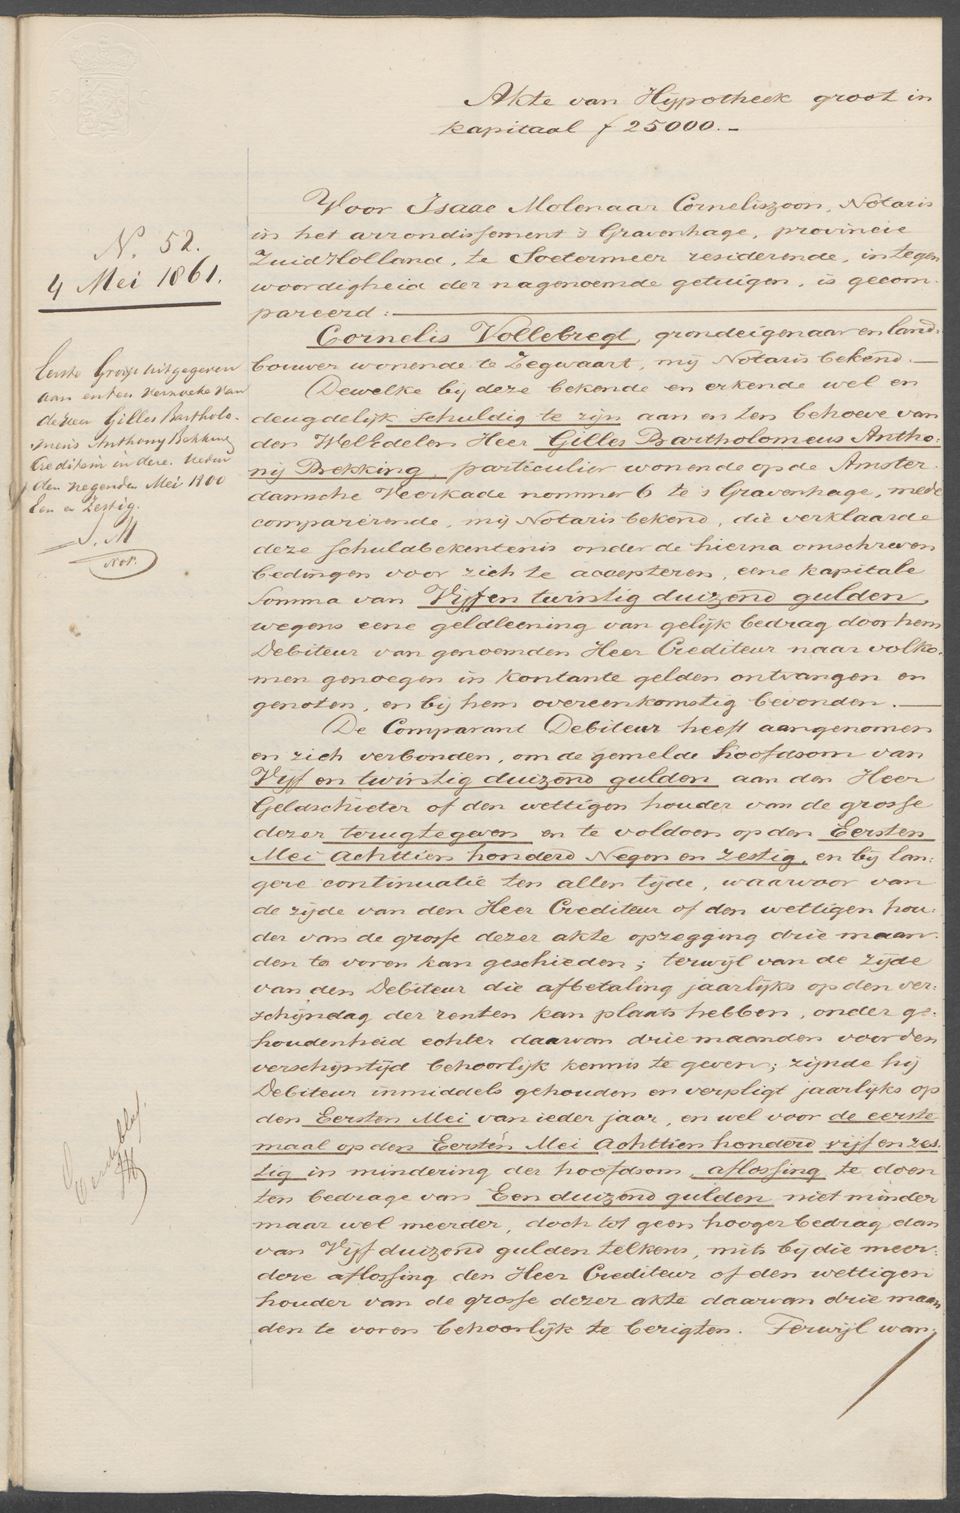 Akte van Hypotheek groot in
kapitaal f 25000.-
N. 52.
4 Mei 1861.
Eerste Grosse uitgegeven
aan en ten verzoeke van
de Heer Gilles Bartholo-
meus Anthony Bekking
Crediteur in deze. Heden
den negenden Mei 1800
Een en Zestig.
J. M
Not.
Voor Isaac Molenaar Corneliszoon, Notaris
in het arrondissement 's Gravenhage, provincie
Zuid Holland, te Soetermeer residerende, in tegen
woordigheid der nagenoemde getuigen, is gecom-
pareerd:
Cornelis Vollebregt, grondeigenaar en land-
bouwer wonende te Zegwaart, mij Notaris bekend.
Dewelke bij deze bekende en erkende wel en
deugdelijk schuldig te zijn aan en ten behoeve van
den WelEdelen Heer Gilles Bartholomeus Antho-
nij Bekking, particulier wonende op de Amster-
damsche Veerkade nommer 6 te 's Gravenhage, mede
comparérende, mij Notaris bekend, die verklaarde
deze schuldbekentenis onder de hierna omschreven
bedingen voor zich te accepteren, eene kapitale
Somma van Vijf en twintig duizend gulden,
wegens eene geldleening van gelijk bedrag door hem
Debiteur van genoemden Heer Crediteur naar volko-
men genoegen in kontante gelden ontvangen en
genoten, en bij hem overeenkomstig bevonden.
De Comparant Debiteur heeft aangenomen
en zich verbonden, om de gemelde hoofdsom van
Vijf en twintig duizend gulden aan den Heer
Geldschieter of den wettigen houder van de grosse
dezer terugtegeven en te voldoen op den Eersten
Mei Achttien honderd Negen en zestig, en bij lan-
gere continuatie ten allen tijde, waarvoor van
de zijde van den Heer Crediteur of den wettigen hou-
der van de grosse dezer akte opzegging drie maan-
den te voren kan geschieden; terwijl van de zijde
van den Debiteur die afbetaling jaarlijks op den ver-
schijndag der renten kan plaats hebben, onder ge-
houdenheid echter daarvan drie maanden voor den
verschijntijd behoorlijk kennis te geven; zijnde hij
Debiteur inmiddels gehouden en verpligt jaarlijks op
den Eersten Mei van ieder jaar, en wel voor de eerste
maal op den Eersten Mei Achttien honderd vijf en zes-
tig in mindering der hoofdsom, aflossing te doen
ten bedrage van Een duizend gulden niet minder
maar wel meerder, doch tot geen hooger bedrag dan
van Vijf duizend gulden telkens, mits bij die meer-
dere aflossing den Heer Crediteur of den wettigen
houder van de grosse dezer akte daarvan drie maan
den te voren behoorlijk te berigten. Terwijl wan-
Eerste blad.